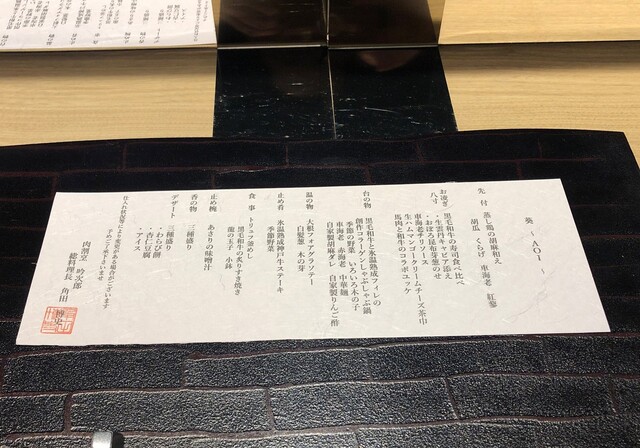 葵 ～AOI～
先付 蒸し鶏の胡麻和え
胡瓜 くらげ 車海老 紅蓼
お凌ぎ 黒毛和牛の寿司食べ比べ
・生雲丹キャビア添え
・おぼろ昆布芽葱のせ
八寸 車海老チリソース
生ハムマンゴークリームチーズ茶巾
馬肉と和牛のコラボユッケ
台の物 黒毛和牛と氷温熟成フィレの
創作コラーゲンしゃぶしゃぶ鍋
季節の野菜 いろいろ木の子
車海老 赤海老 中華麺
自家製胡麻ダレ 自家製りんご酢
温の物 大根フォアグラソテー
白髪葱 木の芽
止め肴 氷温熟成神戸牛ステーキ
季節野菜
食事 トリュフ釜めし
黒毛和牛の炙りすき焼き
龍の玉子 小鉢
止め椀 あさりの味噌汁
香の物 三種盛り
デザート 三種盛り
・わらび餅
・杏仁豆腐
・アイス
仕入れ状況等により変更がある場合がございます
予めご了承下さいませ
肉割烹 吟次郎
総料理長 角田